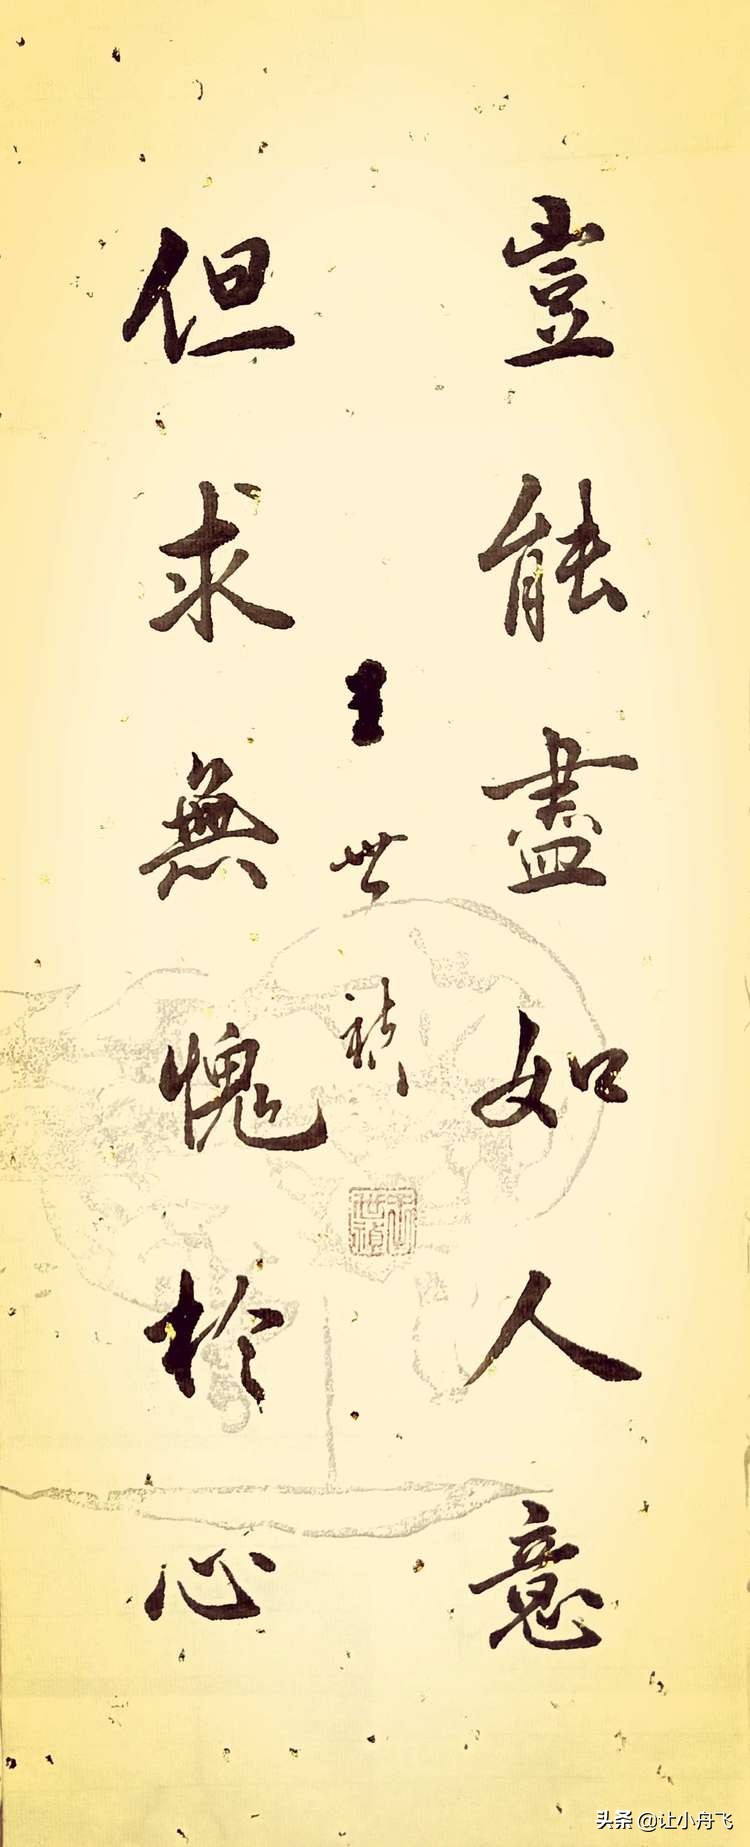 豈能盡如人意
但求無愧於心
王世禎
头条 @让小舟飞